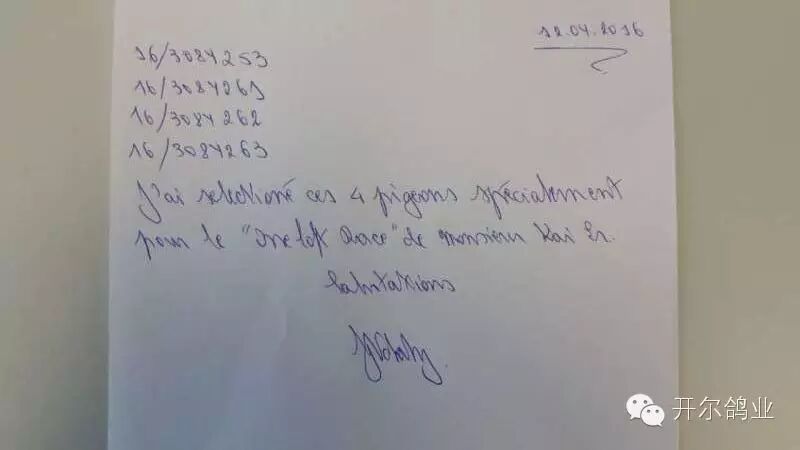 12.04.2016
16/3084253
16/3084261
16/3084262
16/3084263
J'ai selectioné ces 4 pigeons spécialement
pour le "One loft Race" de monsieur Kai Er.
Salutations
开尔鸽业